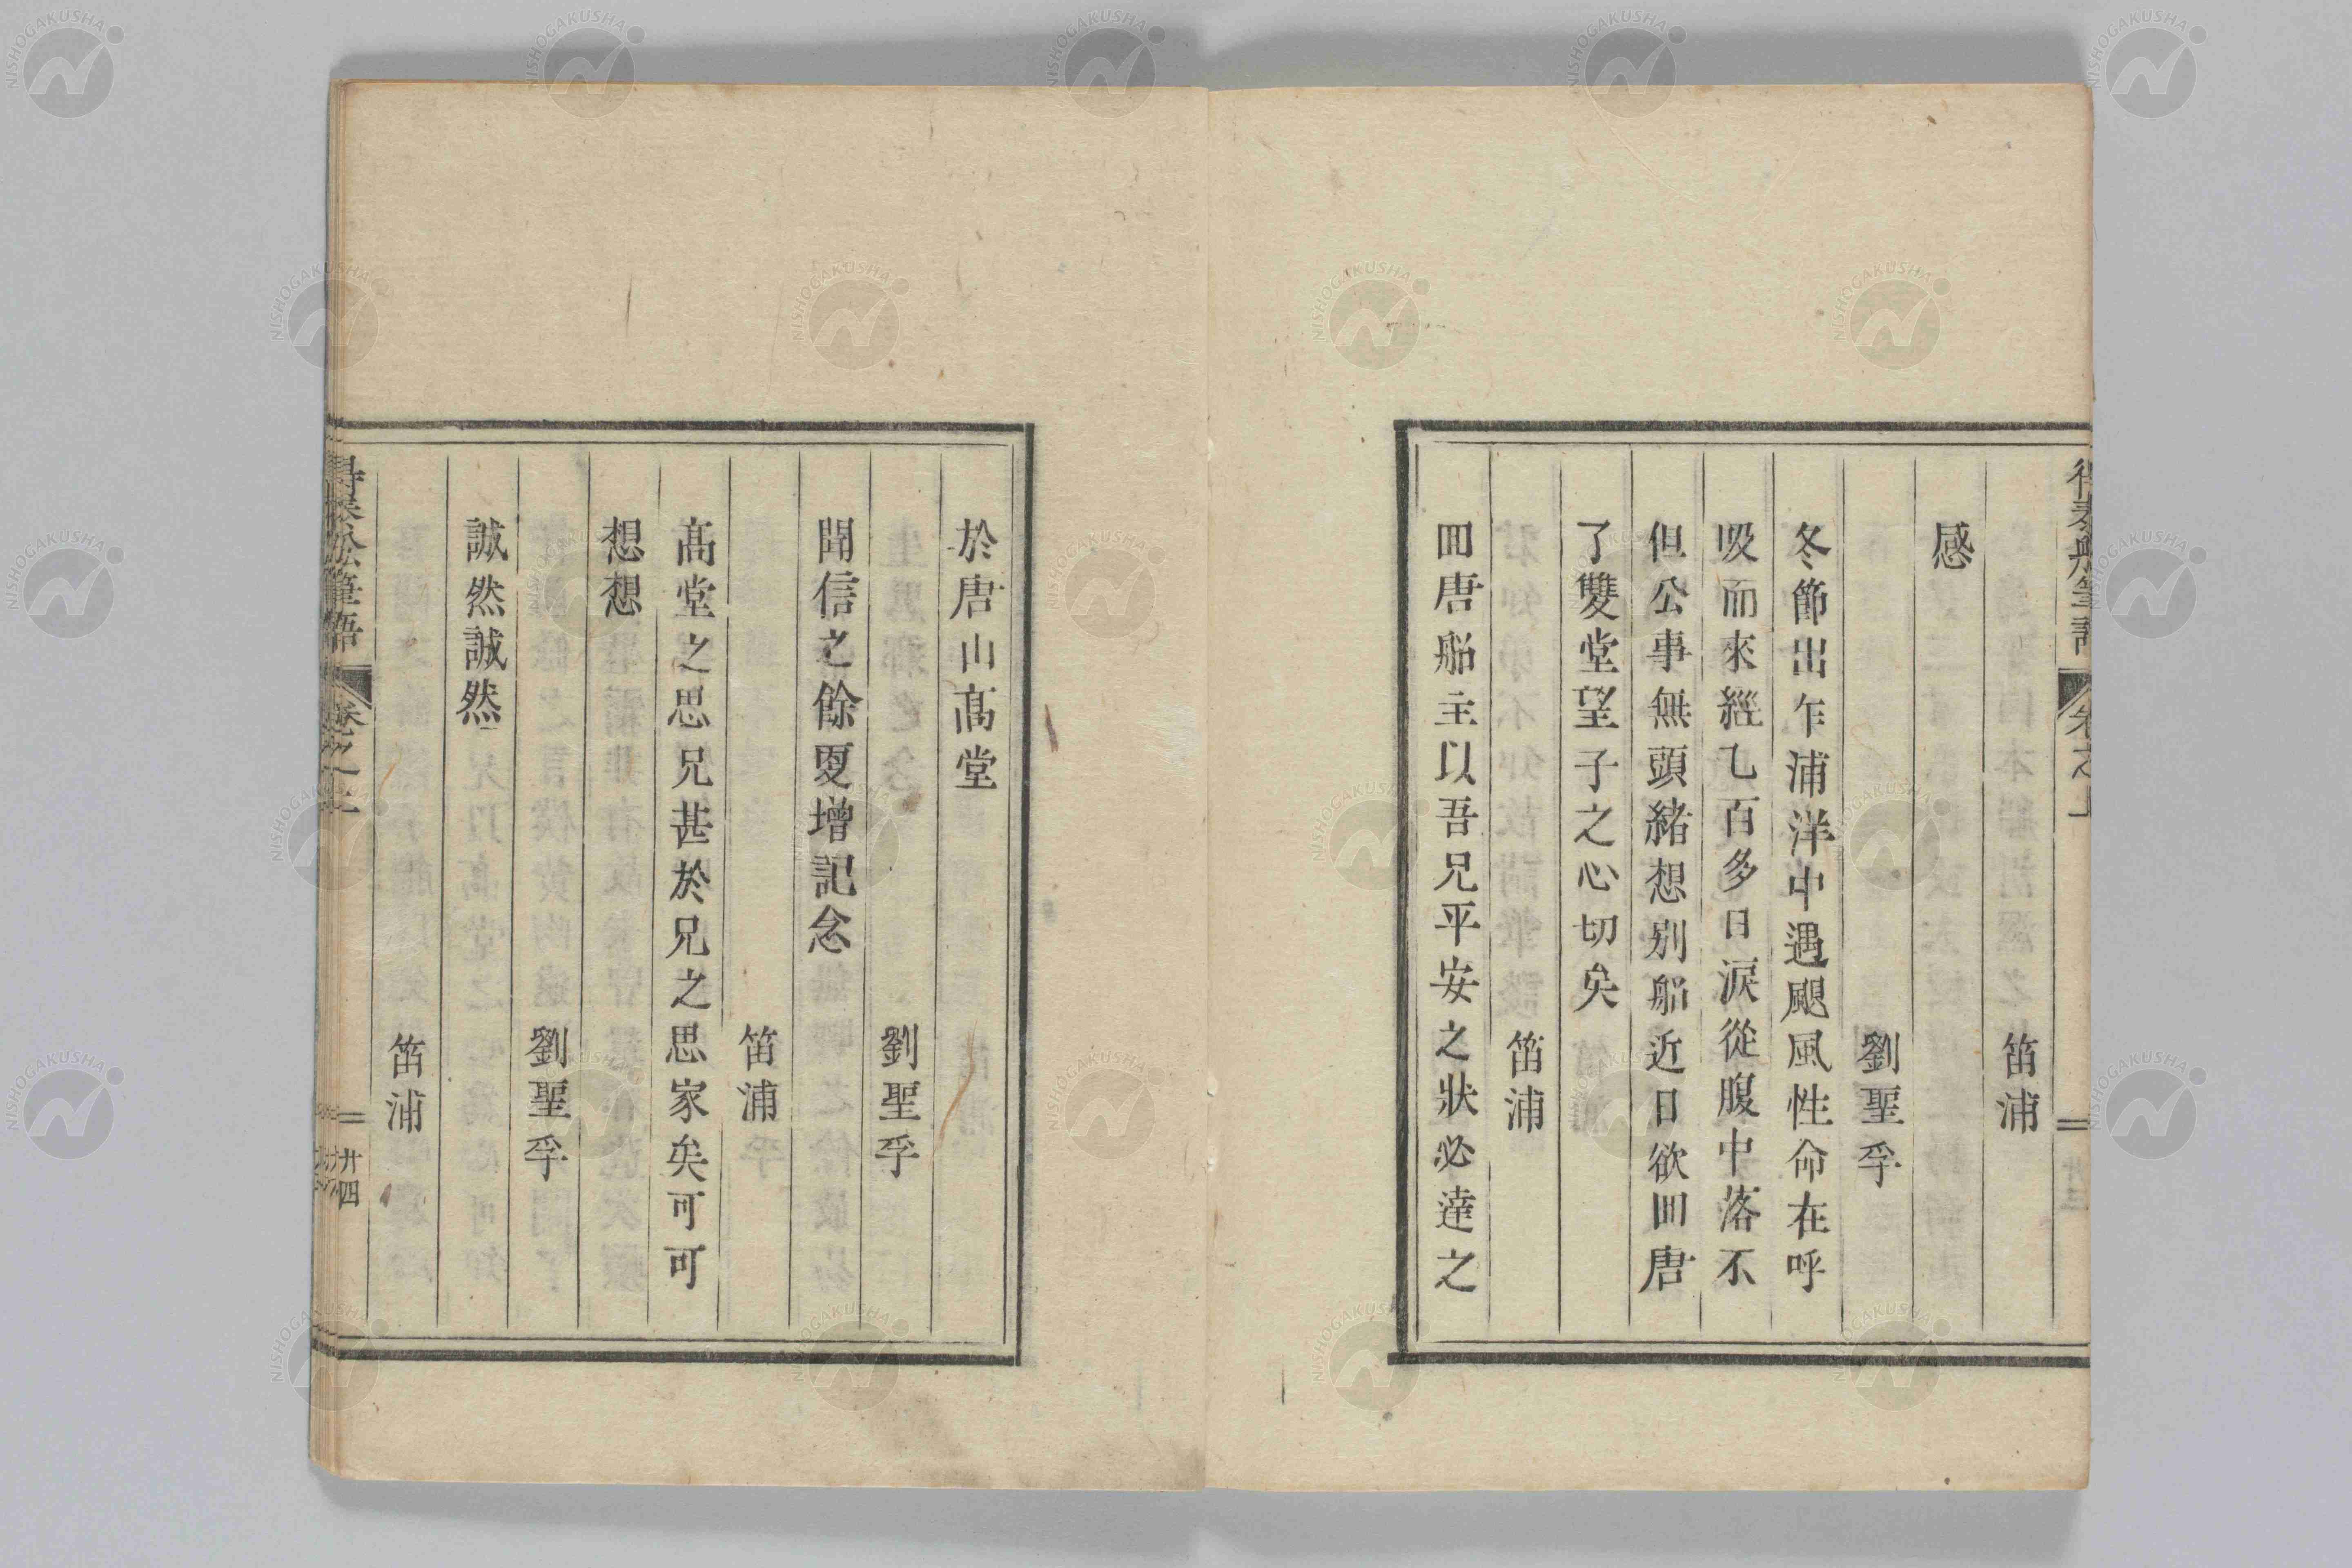 笛浦
感
劉聖孚
冬節出乍浦洋中遇颶風性命在呼
吸而來經乙百多日淚從腹中落不
但公事無頭緒想别船近日欲囬唐
了雙堂望子之心切矣
笛浦
囬唐船主以吾兄平安之狀必達之
於唐山髙堂
劉聖孚
聞信之餘㪅增記念
笛浦
髙堂之思兄甚於兄之思家矣可可
想想
劉聖孚
誠然誠然
笛浦
得泰船筆語
卷之上
廿四
NISHOGAKUSHA